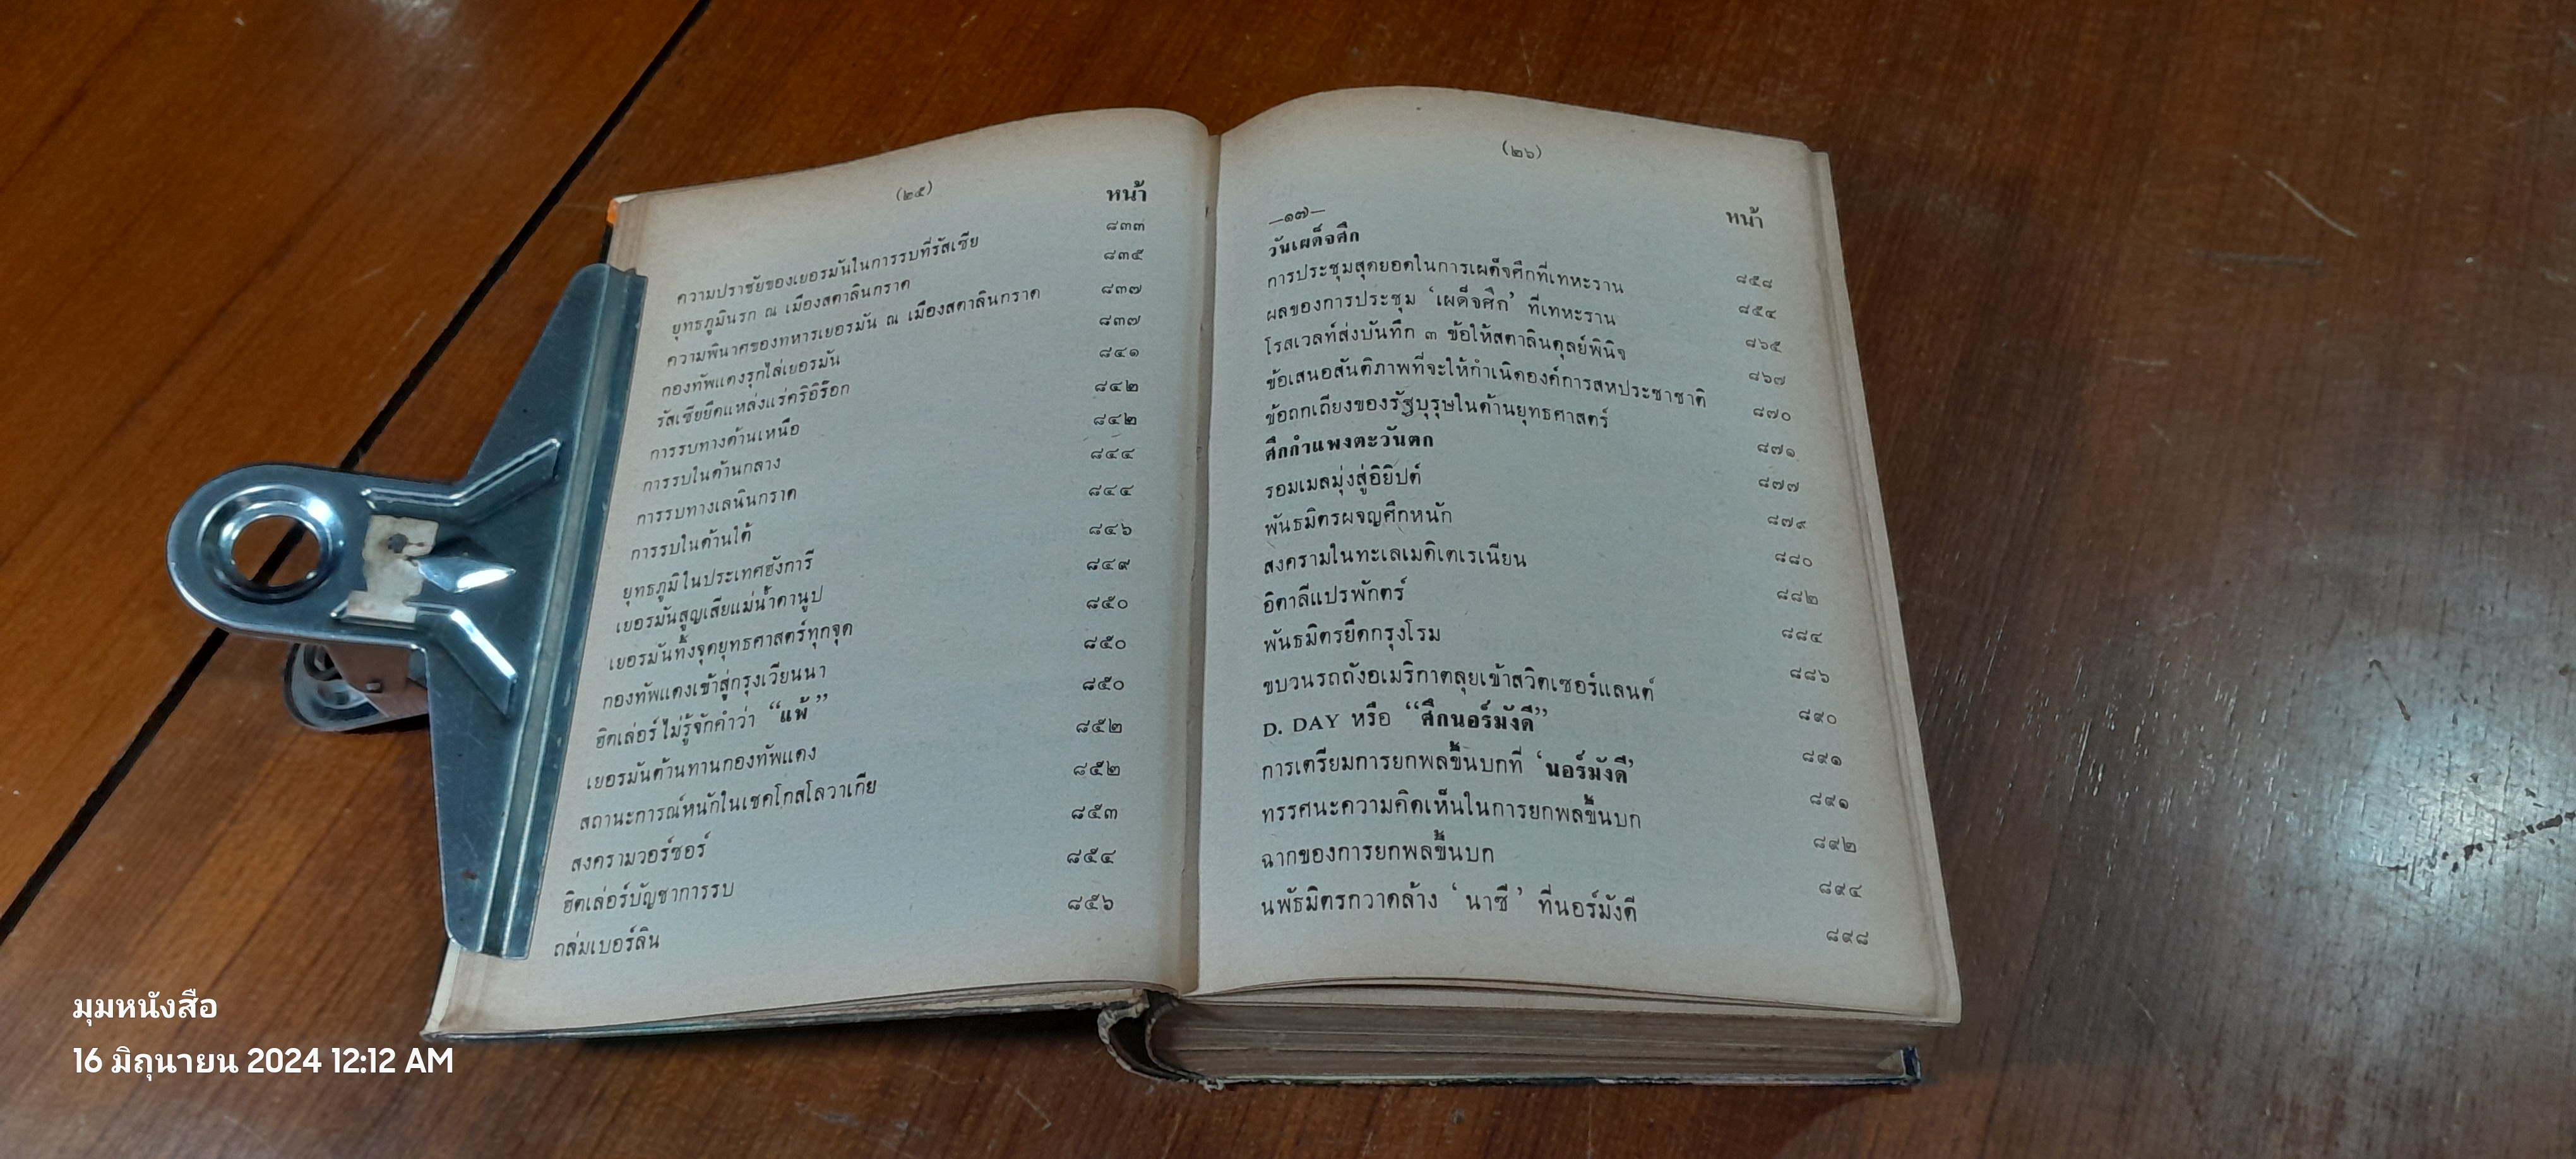 (๒๕)
หน้า
ความปราชัยของเยอรมันในการรบที่รัสเซีย ๘๓๓
ยุทธภูมินรก ณ เมืองสตาลินกราด ๘๓๕
ความพินาศของทหารเยอรมัน ณ เมืองสตาลินกราด ๘๓๗
กองทัพแดงรุกไล่เยอรมัน ๘๓๗
รัสเซียยึดแหล่งแร่คริอิร๊อก ๘๔๑
การรบทางด้านเหนือ ๘๔๒
การรบในด้านกลาง ๘๔๒
การรบทางเลนินกราด ๘๔๔
การรบในด้านใต้ ๘๔๔
ยุทธภูมิในประเทศฮังการี ๘๔๖
เยอรมันสูญเสียแม่น้ำดานูป ๘๔๙
เยอรมันทิ้งจุดยุทธศาสตร์ทุกจุด ๘๕๐
กองทัพแดงเข้าสู่กรุงเวียนนา ๘๕๐
ฮิตเล่อร์ไม่รู้จักคำว่า “แพ้” ๘๕๐
เยอรมันต้านทานกองทัพแดง ๘๕๒
สถานะการณ์หนักในเชคโกสโลวาเกีย ๘๕๒
สงครามวอร์ซอร์ ๘๕๓
ฮิตเล่อร์บัญชาการรบ ๘๕๔
ถล่มเบอร์ลิน ๘๕๖
(๒๖)
หน้า
—๑๗—
วันเผด็จศึก
การประชุมสุดยอดในการเผด็จศึกที่เทหะราน ๘๕๘
ผลของการประชุม ‘เผด็จศึก’ ที่เทหะราน ๘๕๔
โรสเวลท์ส่งบันทึก ๓ ข้อให้สตาลินดุลย์พินิจ ๘๖๕
ข้อเสนอสันติภาพที่จะให้กำเนิดองค์การสหประชาชาติ ๘๖๗
ข้อถกเถียงของรัฐบุรุษในด้านยุทธศาสตร์ ๘๗๐
ศึกกำแพงตะวันตก ๘๗๑
รอมเมลมุ่งสู่อิยิปต์ ๘๗๗
พันธมิตรผจญศึกหนัก ๘๗๙
สงครามในทะเลเมดิเตเรเนียน ๘๘๐
อิตาลีแปรพักตร์ ๘๘๒
พันธมิตรยึดกรุงโรม ๘๘๔
ขบวนรถถังอเมริกาตลุยเข้าสวิตเซอร์แลนด์ ๘๘๖
D. DAY หรือ “ศึกนอร์มังดี” ๘๙๐
การเตรียมการยกพลขึ้นบกที่ ‘นอร์มังดี’ ๘๙๑
ทรรศนะความคิดเห็นในการยกพลขึ้นบก ๘๙๑
ฉากของการยกพลขึ้นบก ๘๙๒
นพัธมิตรกวาดล้าง ‘นาซี’ ที่นอร์มังดี ๘๙๔
๘๙๘
มุมหนังสือ
16 มิถุนายน 2024 12:12 AM